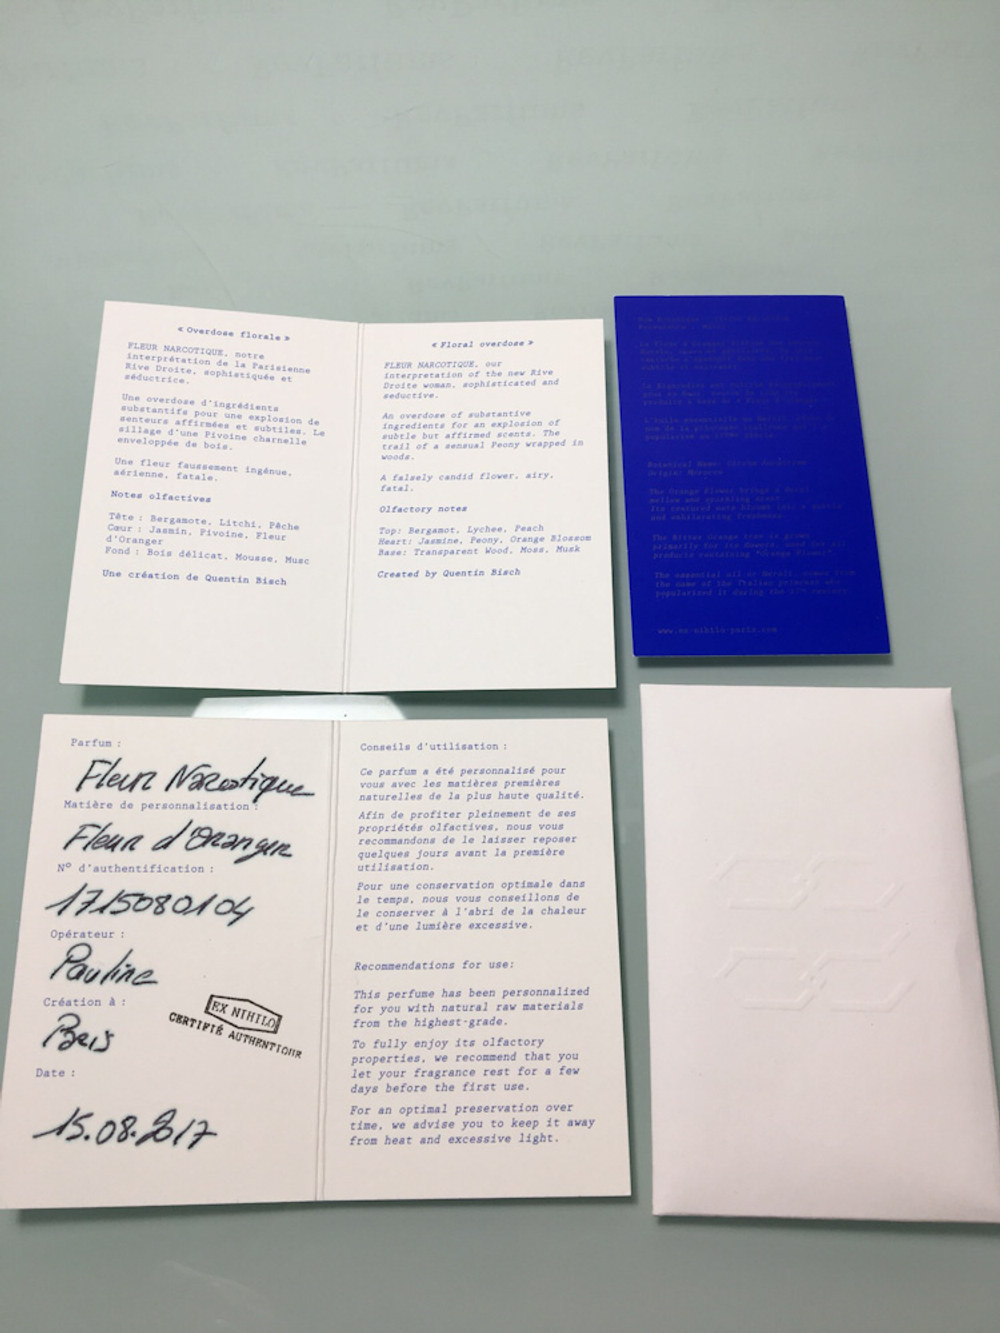 « Overdose florale »
FLEUR NARCOTIQUE, notre
interprétation de la Parisienne
Rive Droite, sophistiquée et
séductrice.
Une overdose d'ingrédients
substantifs pour une explosion de
senteurs affirmées et subtiles. Le
sillage d'une Pivoine charnelle
enveloppée de bois.
Une fleur faussement ingénue,
aérienne, fatale.
Notes olfactives
Tête : Bergamote, Litchi, Pêche
Cœur : Jasmin, Pivoine, Fleur
d'Oranger
Fond : Bois délicat, Mousse, Musc
Une création de Quentin Bisch
« Floral overdose »
FLEUR NARCOTIQUE, our
interpretation of the new Rive
Droite woman, sophisticated and
seductive.
An overdose of substantive
ingredients for an explosion of
subtle but affirmed scents. The
trail of a sensual Peony wrapped in
woods.
A falsely candid flower, airy,
fatal.
Olfactory notes
Top: Bergamot, Lychee, Peach
Heart: Jasmine, Peony, Orange Blossom
Base: Transparent Wood, Moss, Musk
Created by Quentin Bisch
Origin: Morocco
The Orange Flower brings a
mellow and sparkling
and exhilarating freshness
The Bitter Orange tree is grown
primarily for its
products containing "Orange Flower"
The essential oil or Neroli, named from
the name of the Italian princess who
popularized it during the 17th century.
www.ex-nihilo-paris.com
Parfum :
Fleur Narcotique
Matière de personnalisation :
Fleur d'Oranger
N° d'authentification :
1715080104
Opérateur :
Pauline
Création à :
Paris
Date :
15.08.2017
EX NIHILO
CERTIFIÉ AUTHENTIQUE
Conseils d'utilisation :
Ce parfum a été personnalisé pour
vous avec les matières premières
naturelles de la plus haute qualité.
Afin de profiter pleinement de ses
propriétés olfactives, nous vous
recommandons de le laisser reposer
quelques jours avant la première
utilisation.
Pour une conservation optimale dans
le temps, nous vous conseillons de
le conserver à l'abri de la chaleur
et d'une lumière excessive.
Recommendations for use:
This perfume has been personnalized
for you with natural raw materials
from the highest-grade.
To fully enjoy its olfactory
properties, we recommend that you
let your fragrance rest for a few
days before the first use.
For an optimal preservation over
time, we advise you to keep it away
from heat and excessive light.